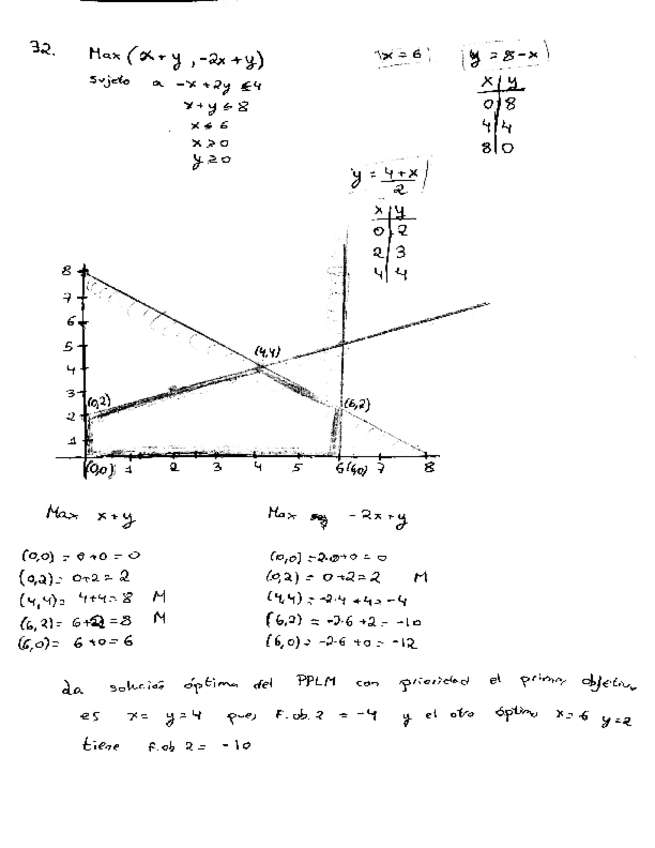 32.
Max (x+y, -2x+y)
sujeto a -x+2y ≤4
x+y ≤ 8
x ≤ 6
x ≥ 0
y ≥ 0
x = 6
y = 8-x
x | y
0 | 8
4 | 4
8 | 0
y = 4+x / 2
x | y
0 | 2
2 | 3
4 | 4
8
7
6
5
4
3
2
1
(4,4)
(0,2)
(6,2)
(0,0) 1 2 3 4 5 6 (6,0) 7 8
Max x+y
(0,0) = 0+0 = 0
(0,2)= 0+2 = 2
(4,4)= 4+4= 8 M
(6,2)= 6+2=8 M
(6,0)= 6+0= 6
Max -2x+y
(0,0)=2·0+0 = 0
(0,2)= 0+2=2 M
(4,4)= -2·4 +4= -4
(6,2) = -2·6 +2 = -10
(6,0)= -2·6 +0 = -12
La solución óptima del PPLM con prioridad el primer objetivo
es x= y=4 pues F.ob.2 = -4 y el otro óptimo x=6 y=2
tiene F.ob 2 = -10